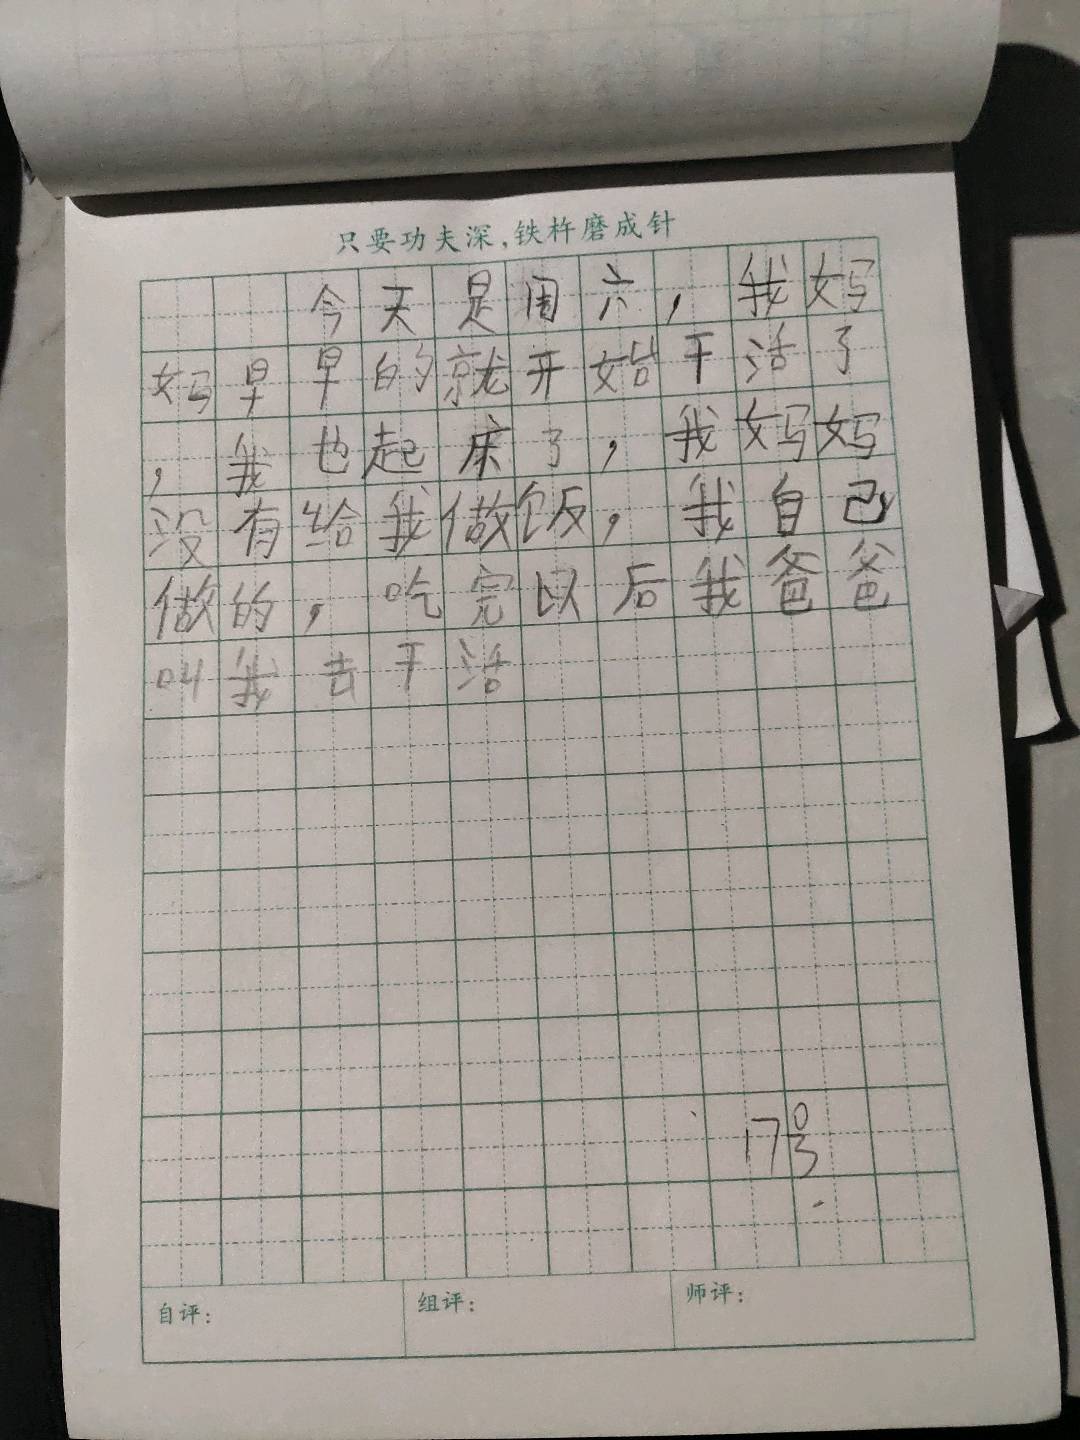 只要功夫深,铁杵磨成针
今天是周六,我妈
妈早早的就开始干活了
,我也起床了,我妈妈
没有给我做饭,我自己
做的,吃完以后我爸爸
叫我去干活
17
自评: 组评: 师评: